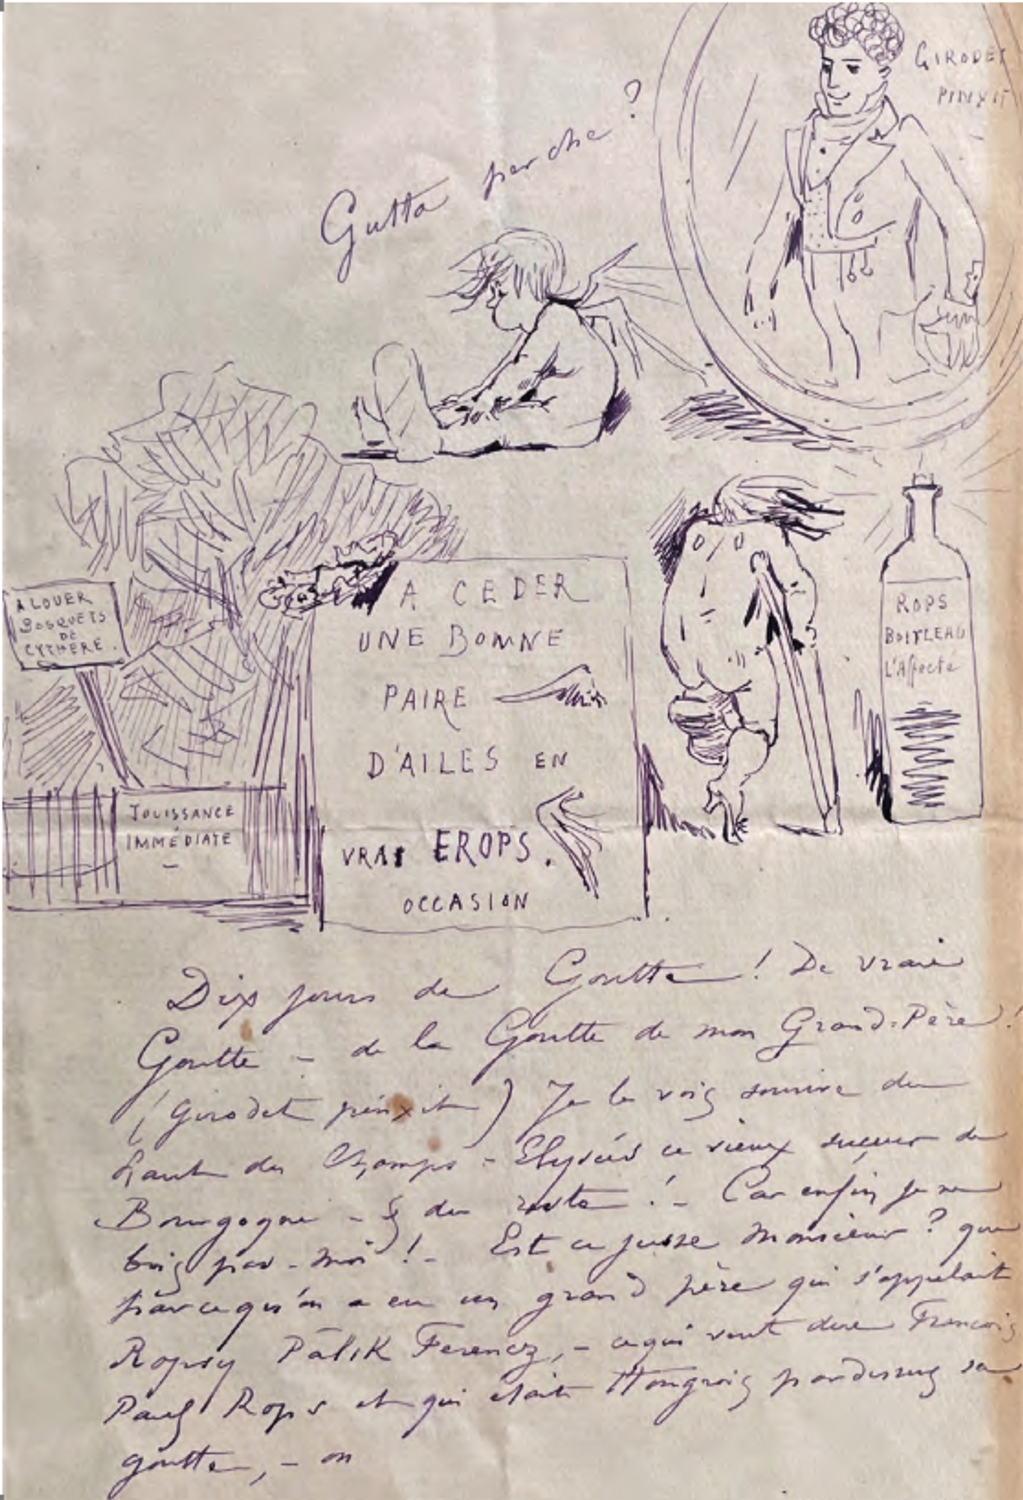 GIRODET
PINXIT
Gutta per che ?
A LOUER
BOSQUETS
DE
CYTHERE.
JOUISSANCE
IMMÉDIATE
A CEDER
UNE BONNE
PAIRE
D'AILES EN
VRAI EROPS.
OCCASION
ROPS
BOITLEAU
L'Affecté
Dix jours de Goutte ! De vraie
Goutte – de la Goutte de mon Grand-Père !
(Girodet pinxit) Je le vois sourire du
haut des Champs-Elysées ce vieux suceur de
Bourgogne – & du reste ! – Car enfin je ne
bois pas – moi ! – Est ce juste Monsieur ? que
parcequ'on a eu un grand père qui s'appelait
Ropsy Pálik Ferencz, – ce qui veut dire François
Paul Rops et qui était Hongrois pardessus sa
goutte, – on